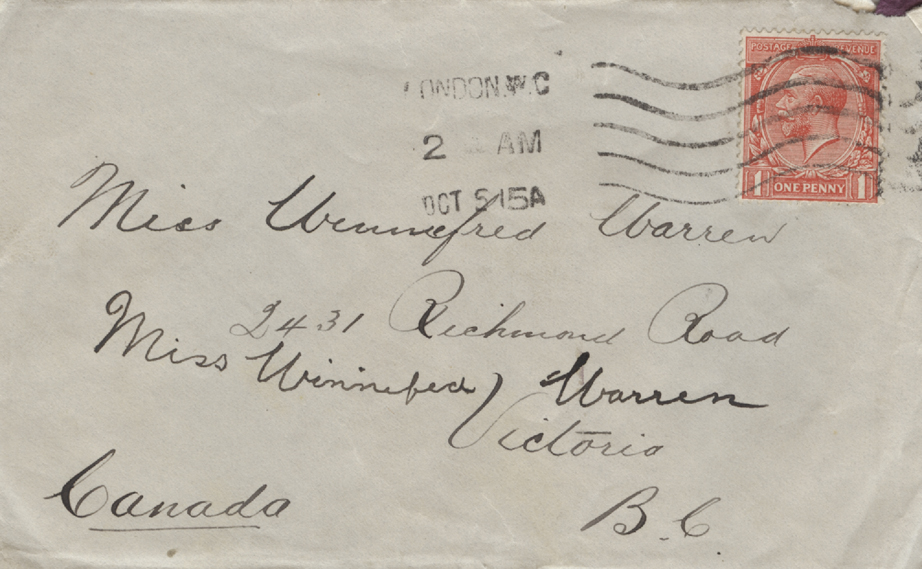 POSTAGE REVENUE
LONDON.W.C
2 AM
OCT 5 15A
ONE PENNY
1 1
Miss Winnefred Warren
2431 Richmond Road
Miss Winnifred Warren
Victoria
Canada
B.C.